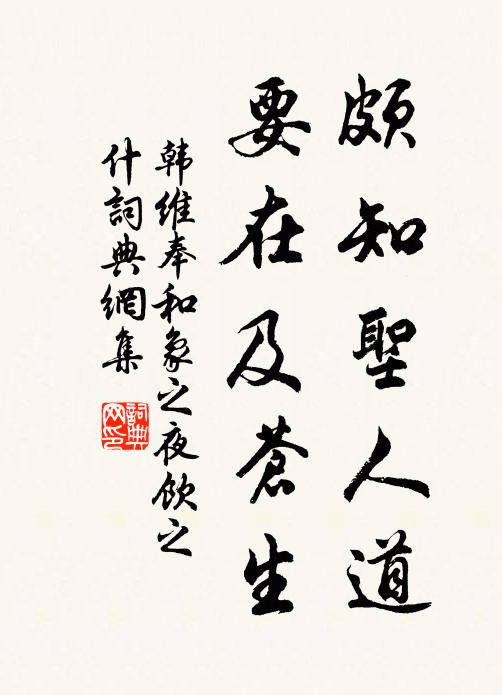 頗知聖人道
要在及蒼生
韩維奉和象之夜飲之
什詞典網集
詞典
网印